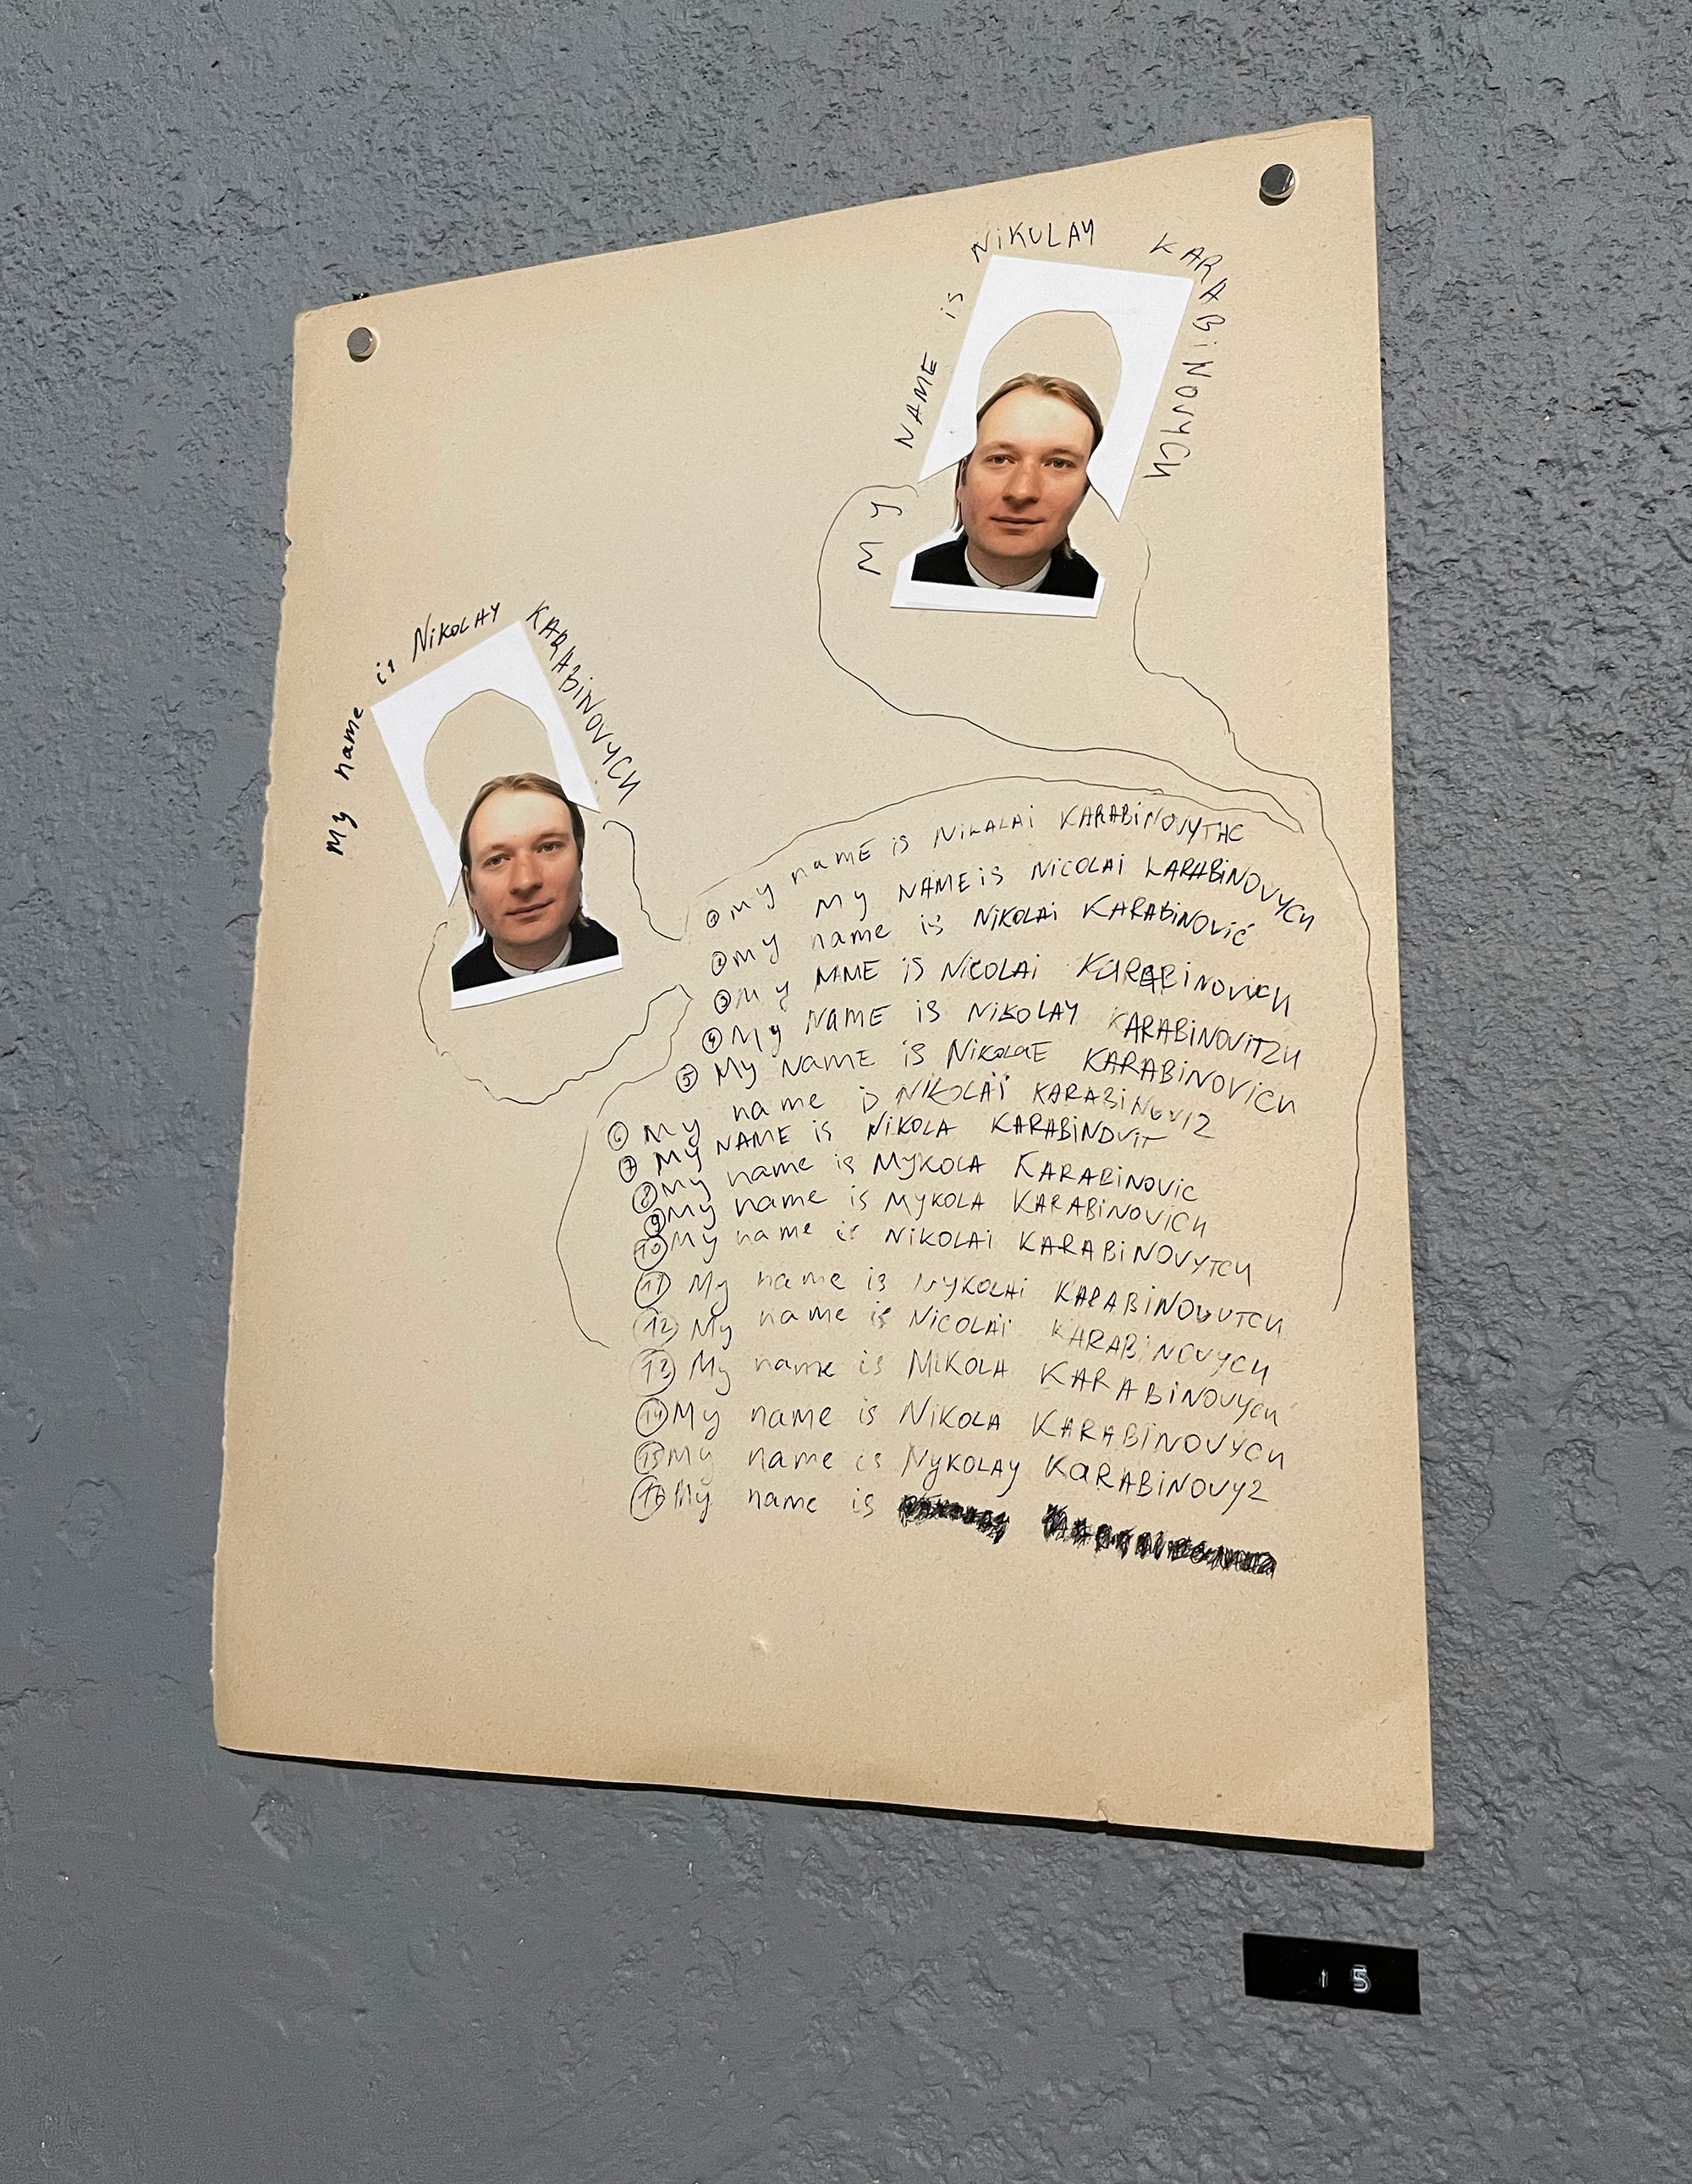 MY NAME is NiKOLAY KARABiNOVYCH
My name is NiKOLAY KARABiNOVYCH
① my namE is NiKALAi KARABiNOVYTHC
MY NAME is NiCOLAi LARABiNOVYCH
② my name is NiKOLAi KARABiNOViĆ
③ MY NAME iS NiCOLAi KARABiNOViCH
④ MY NAME iS NiKOLAY KARABiNOViTZH
⑤ My NaME iS NiKOLaE KARABiNOViCH
⑥ My name is NiKOLAÏ KARABiNOViZ
⑦ MY NAME is NiKOLA KARABiNOViT
⑧ My name is MYKOLA KARABiNOViC
⑨ My name is MYKOLA KARABiNOViCH
⑩ My name is NiKOLAi KARABiNOVYTCH
⑪ My name is NYKOLAi KARABiNOVUTCH
⑫ My name is NiCOLAi KARABiNOVYCH
⑬ My name is MiKOLA KARABiNOVYCH
⑭ My name is NiKOLA KARABiNOVYCH
⑮ My name is NYKOLAY KaRABiNOVYZ
⑯ My name is
15